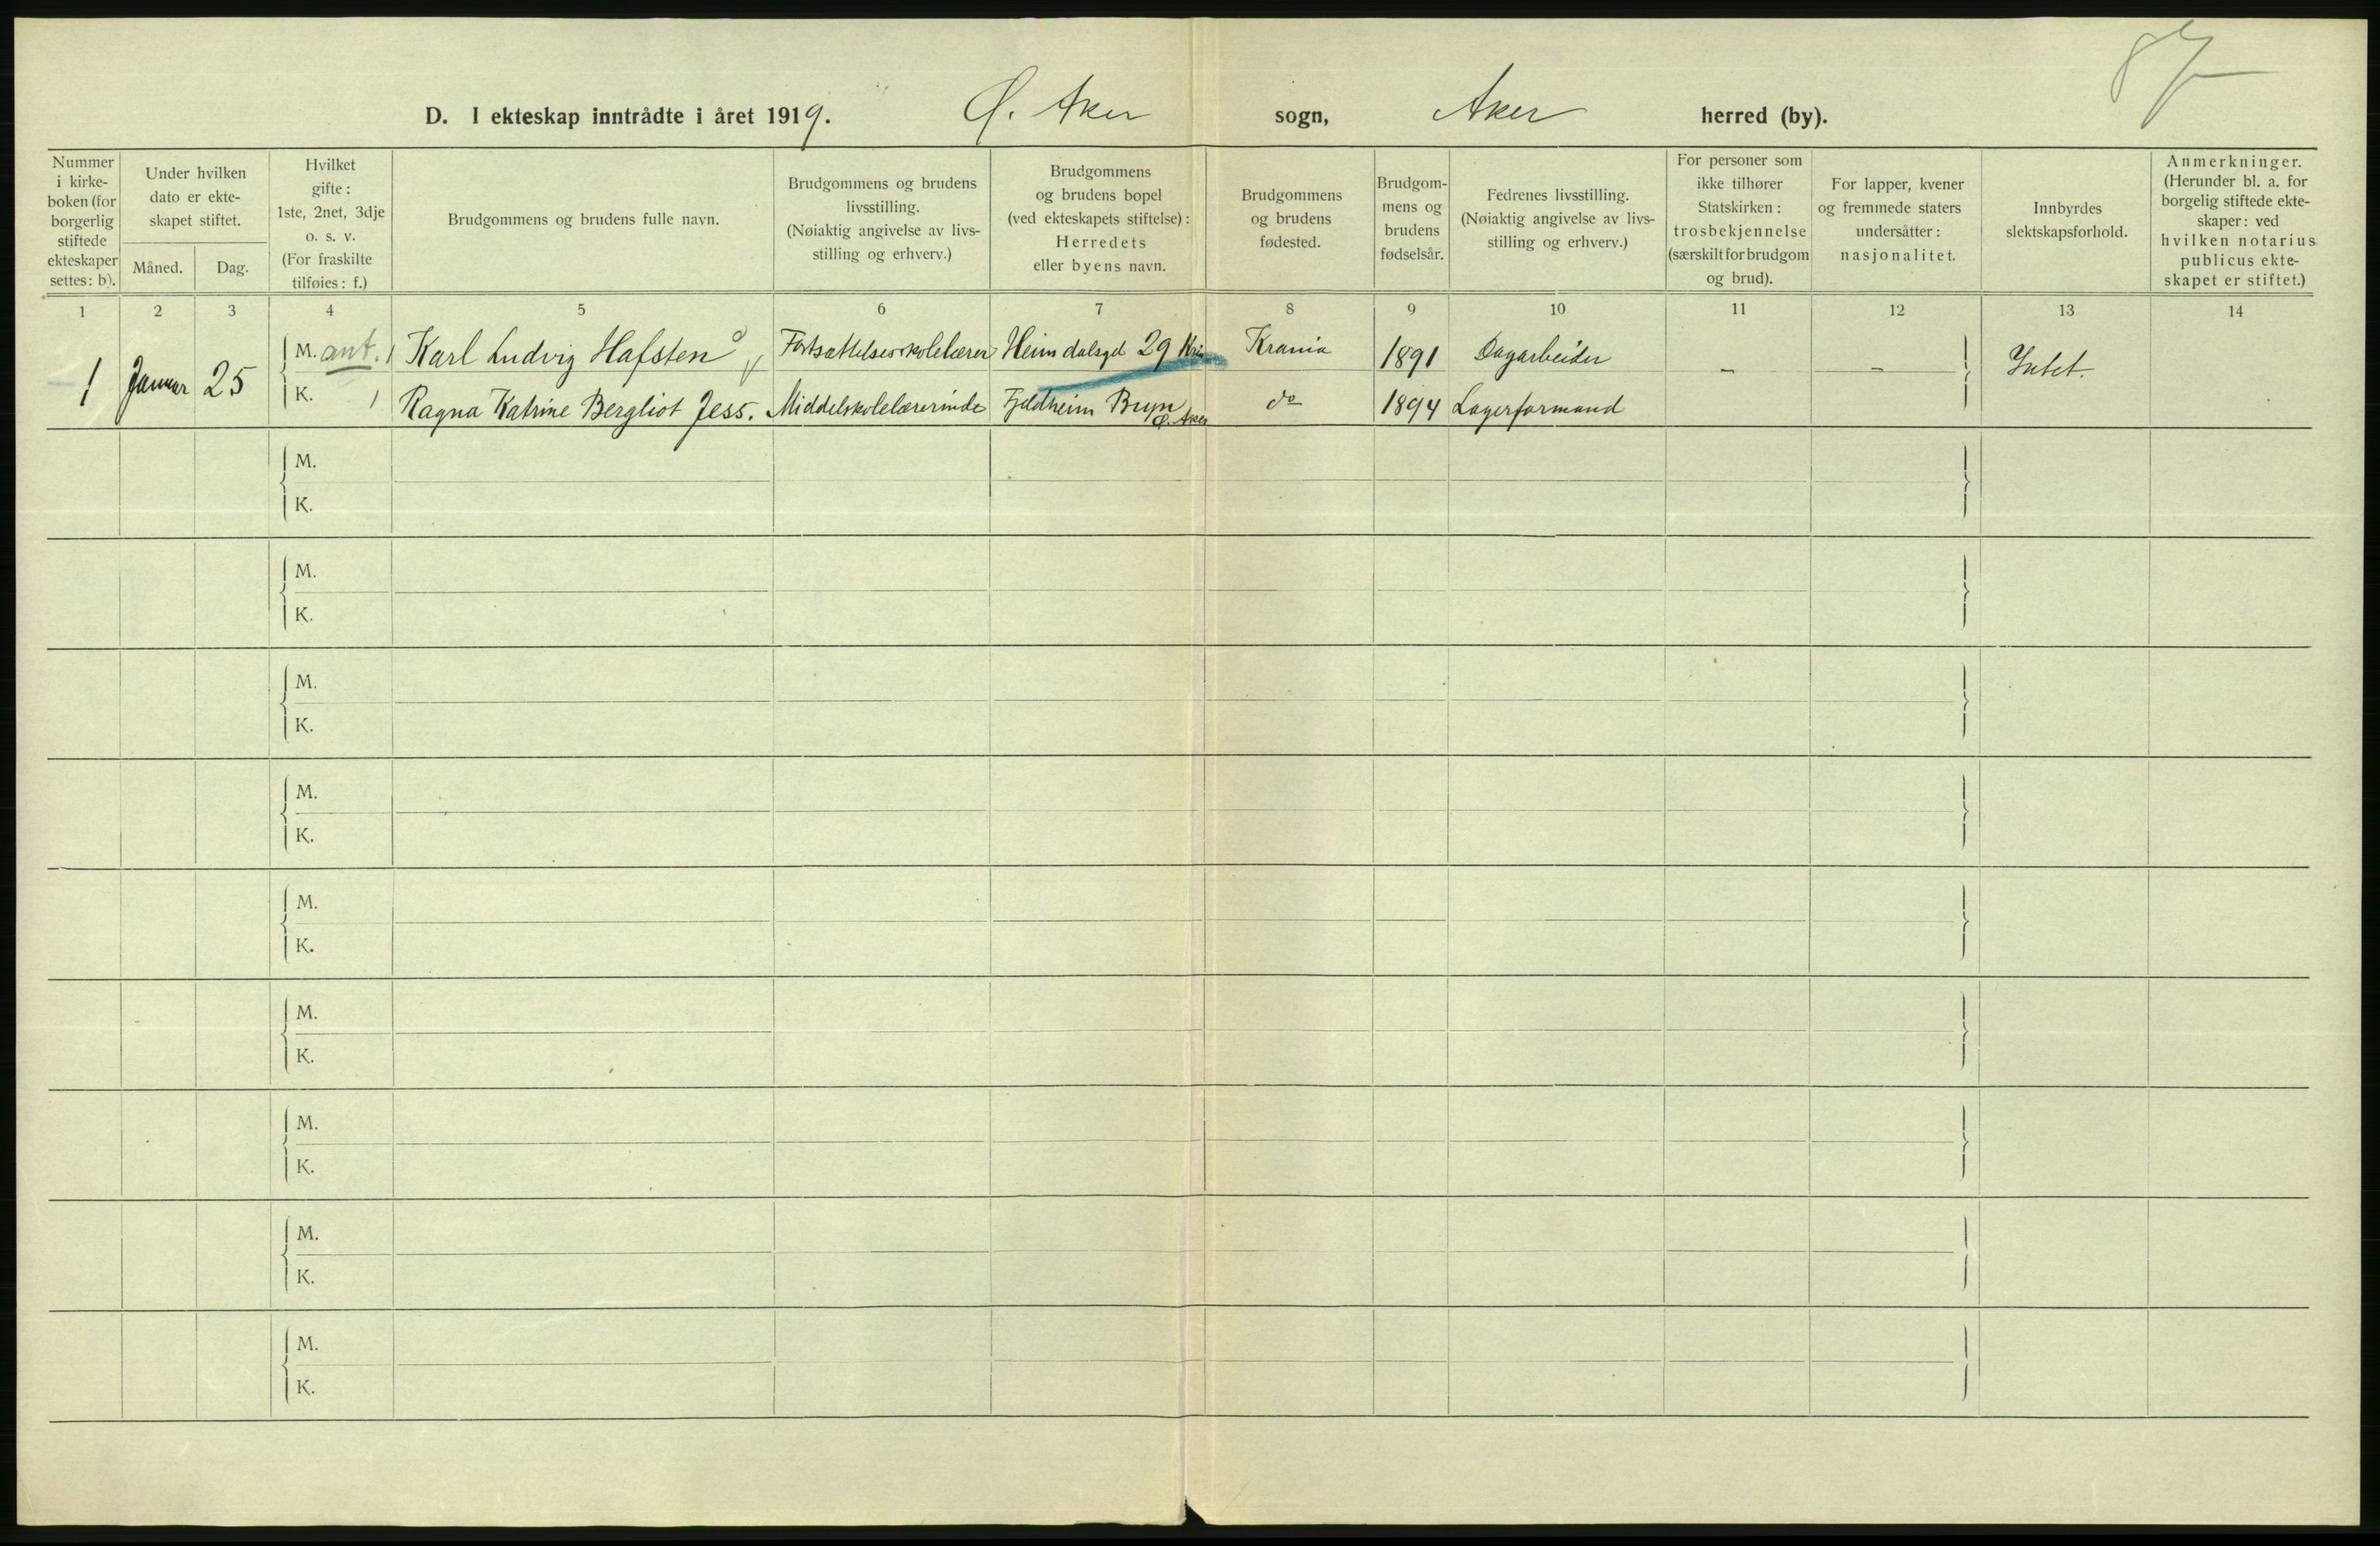 87
D. I ekteskap inntrådte i året 1919. Ø. Aker sogn, Aker herred (by).
Nummer i kirke-boken (for borgerlig stiftede ekteskaper settes: b).
Under hvilken dato er ekte-skapet stiftet.
Måned. Dag.
Hvilket gifte: 1ste, 2net, 3dje o. s. v. (For fraskilte tilføies: f.)
Brudgommens og brudens fulle navn.
Brudgommens og brudens livsstilling. (Nøiaktig angivelse av livs-stilling og erhverv.)
Brudgommens og brudens bopel (ved ekteskapets stiftelse): Herredets eller byens navn.
Brudgommens og brudens fødested.
Brudgom-mens og brudens fødselsår.
Fedrenes livsstilling. (Nøiaktig angivelse av livs-stilling og erhverv.)
For personer som ikke tilhører Statskirken: trosbekjennelse (særskilt for brudgom og brud).
For lapper, kvener og fremmede staters undersåtter: nasjonalitet.
Innbyrdes slektskapsforhold.
Anmerkninger. (Herunder bl. a. for borgelig stiftede ekte-skaper: ved hvilken notarius publicus ekte-skapet er stiftet.)
1 2 3 4 5 6 7 8 9 10 11 12 13 14
1 Januar 25 M. ant. 1 Karl Ludvig Hafsten Fortsættelsesskolelærer Heimdalsgd 29 Kria Krania 1891 Dagarbeider - - Intet.
K. 1 Ragna Katrine Bergliot Jess. Middelskolelærerinde Fjeldheim Bryn Ø. Aker do 1894 Lagerformand
M.
K.
M.
K.
M.
K.
M.
K.
M.
K.
M.
K.
M.
K.
M.
K.
M.
K.